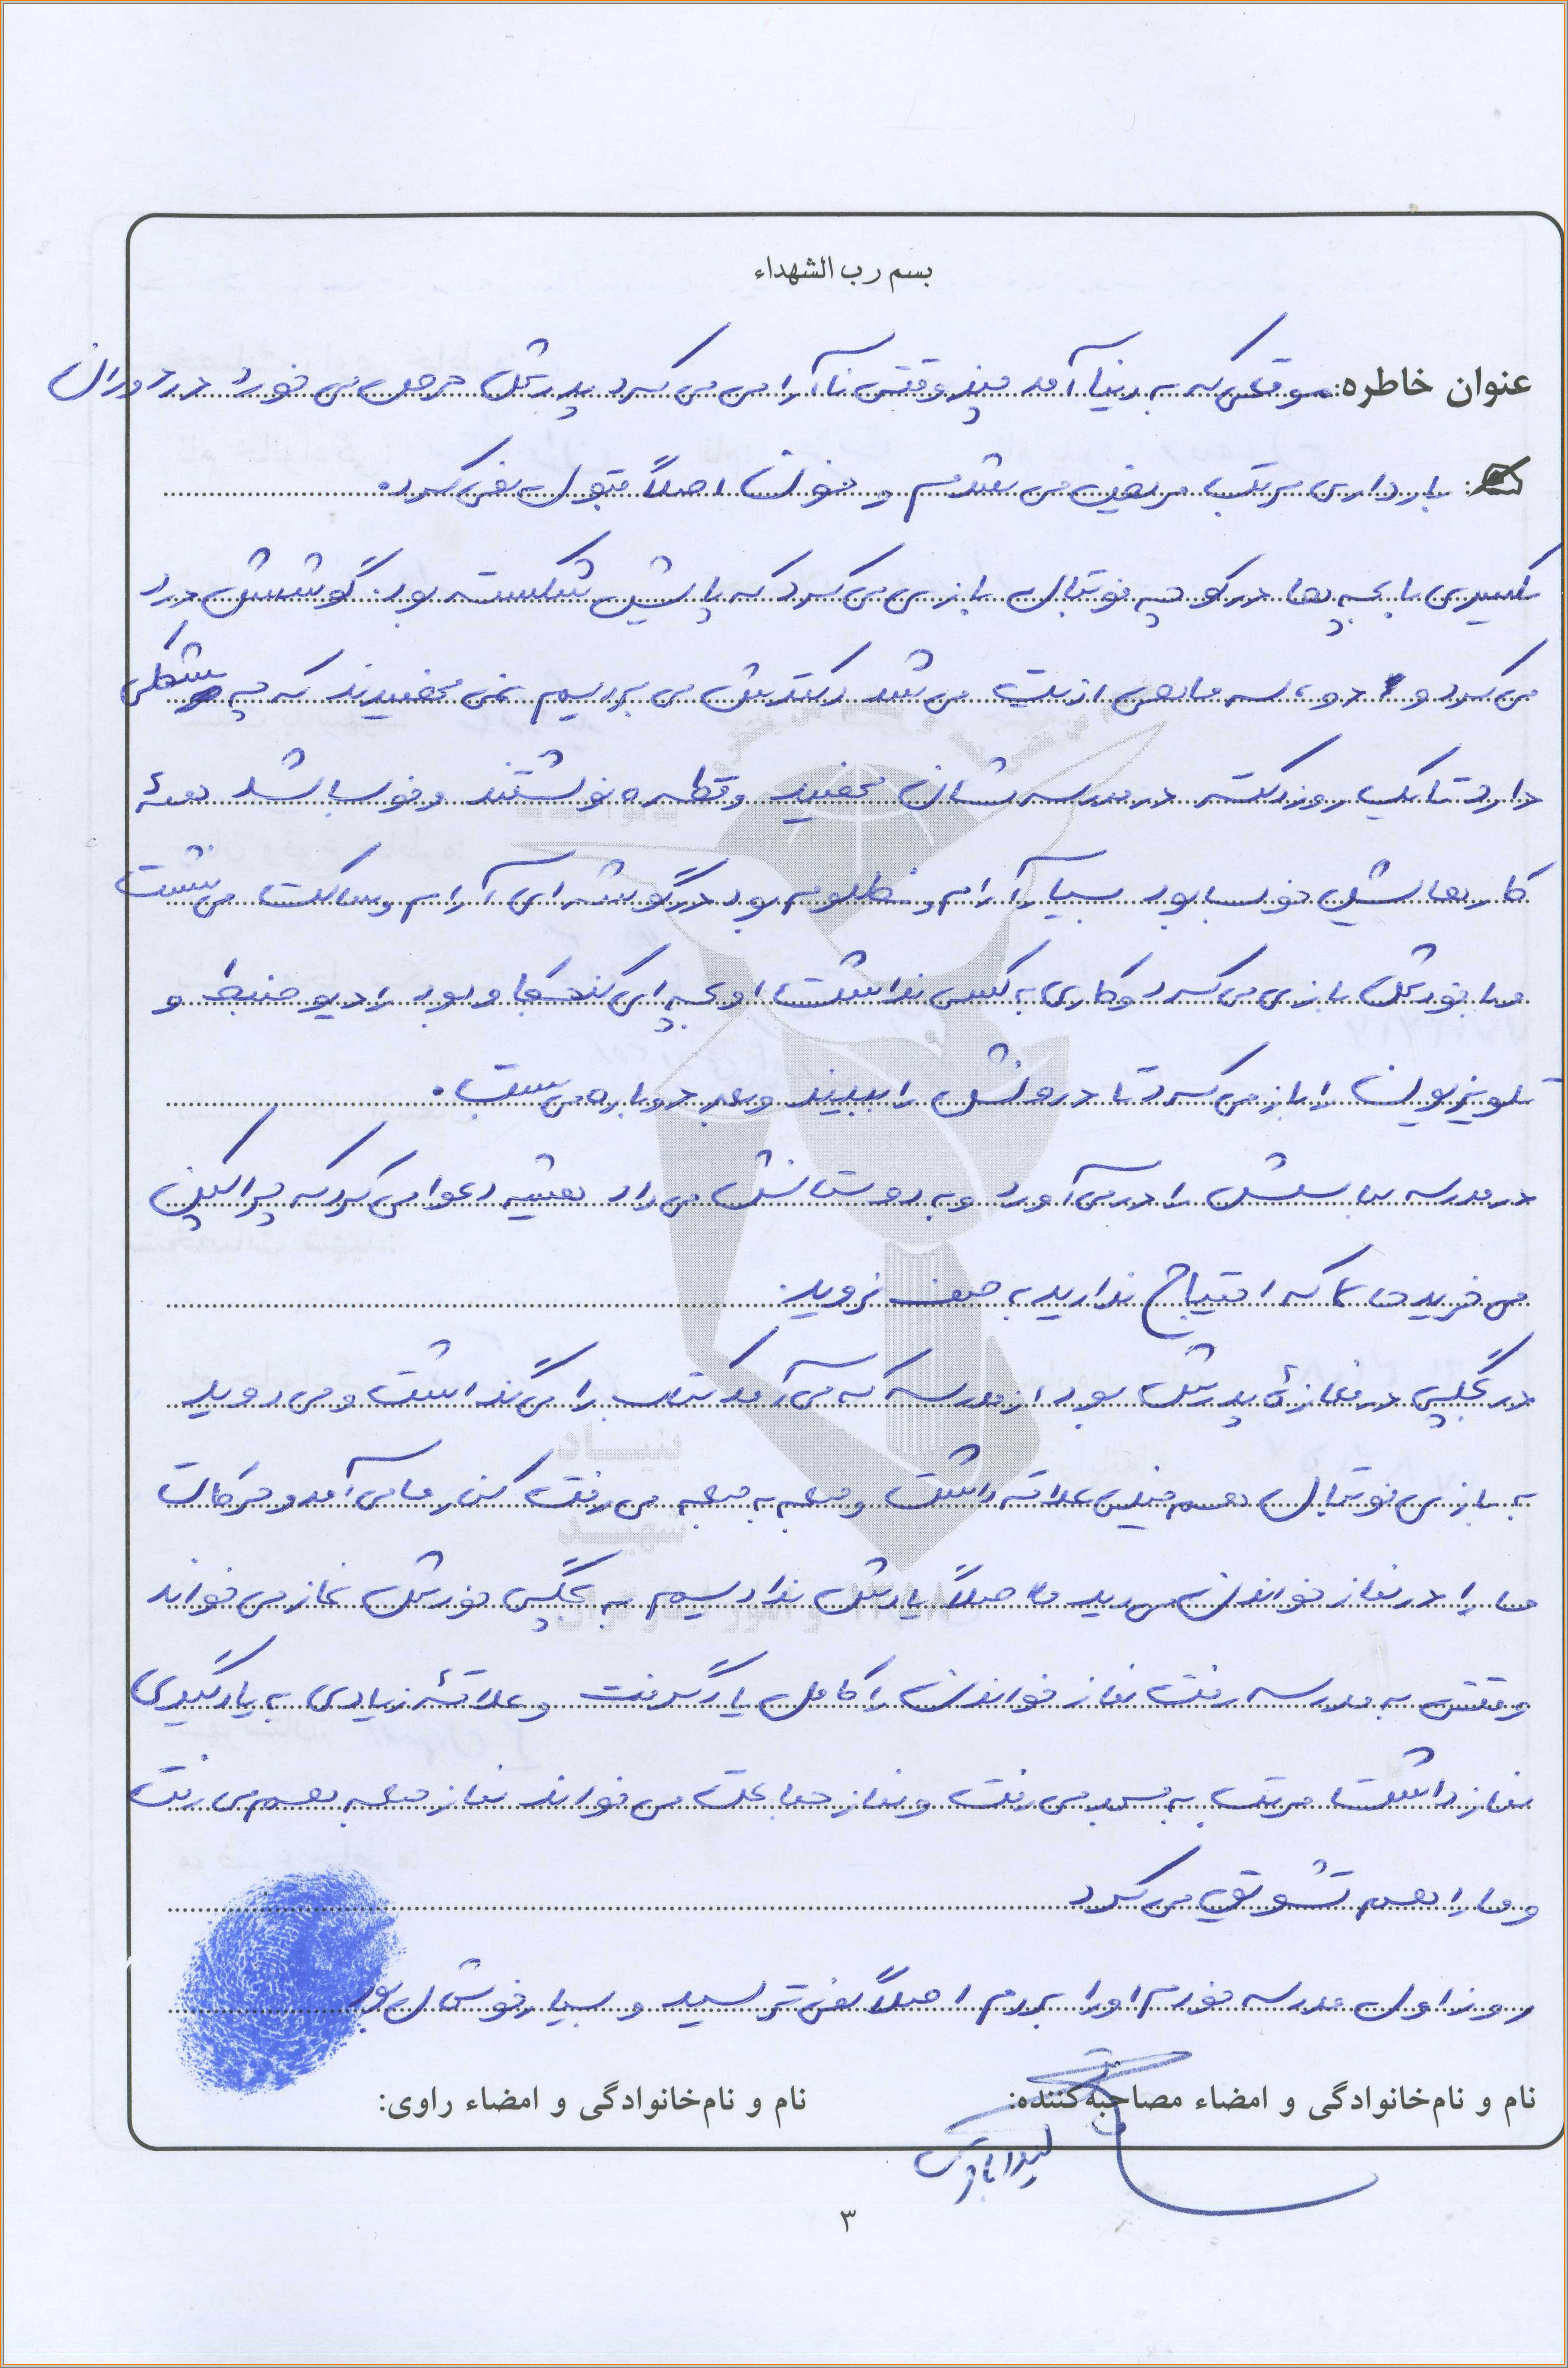 بسم رب الشهداء
عنوان خاطره: موقعی که به دنیا آمد چند وقتی ناآرامی می کرد پدرش حرص می خورد در دوران
بارداری مرتب مریض می شدم و خونا اصلاً قبول نمی کرد.
یکسری با بچه ها در کوچه فوتبال بازی می کرد که پایش شکسته بود. گوشش درد
می کرد و دو، سه ماهی اذیت می شد دکترش می بردیم نمی فهمیدند که چه مشکلی
دارد تا یک روز دکتر در مدرسه شان فهمید و قطره نوشتند و خوب شد همۀ
کارهایش خوب بود بسیار آرام و مظلوم بود در گوشه ای آرام و ساکت می نشست
و با خودش بازی می کرد و کاری به کسی نداشت او بچه ای کنجکاو بود رادیو ضبط و
تلویزیون را باز می کرد تا درونش را ببیند و بعد دوباره می بست.
در مدرسه لباسش را در می آورد و به دوستانش می داد همیشه دعوا می کرد که چرا کپن
می خرید شما که احتیاج ندارید به صف نروید.
در بچگی در مغازۀ پدرش بود از مدرسه که می آمد کتاب را می گذاشت و می دوید
به بازی فوتبال هم خیلی علاقه داشت و جمعه به جمعه می رفت کنار ما می آمد و حرکات
ما را در نماز خواندن می دید ما اصلاً یادش ندادیم به بچگی خودش نماز می خواند
وقتی به مدرسه رفت نماز خواندن را کامل یاد گرفت و علاقۀ زیادی به یادگیری
نماز داشت مرتب به مسجد می رفت و نماز جماعت می خواند نماز جمعه هم می رفت
و ما را هم تشویق می کرد
روز اول مدرسه خودم او را بردم اصلاً نمی ترسید و بسیار خوشحال بود
نام و نام‌خانوادگی و امضاء مصاحبه‌کننده:
نام و نام‌خانوادگی و امضاء راوی:
۳
بنیاد
شهید